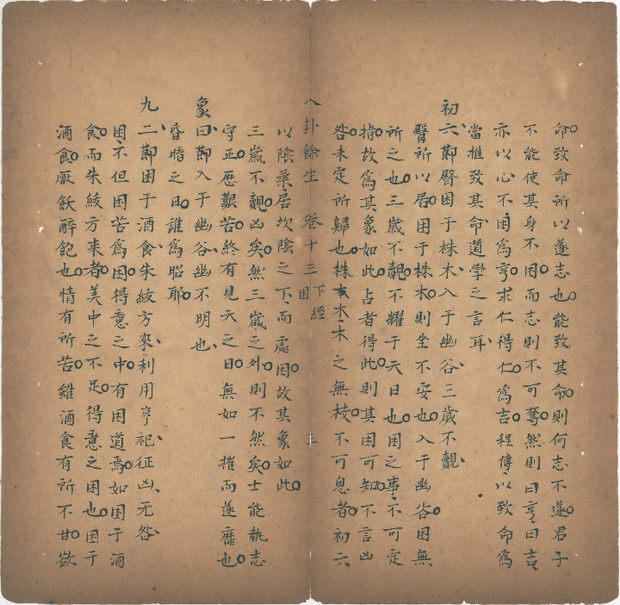 命致命所以遂志也能致其命則何志不遂君子
不能使其身不困而志則不可奪然則曰亨曰吉
亦以心不困爲亨求仁得仁爲吉程傳以致命爲
當推致其命道學之言耳
初六䪺臀困于株木入于幽谷三歲不覿
臀所以居困于株木則坐不安也入于幽谷困無
所之也三歲不覿不耀于天日也困之事不可定
指故爲其象如此占者得此則其困可知不言凶
咎未定所歸也株木木之無枝不可息者初六
八卦餘生 卷十三 下經 困
以陰柔居坎陰之下而處困故其象如此
三歲不覿凶矣然三歲之外則不然矣士能執志
守正歷艱苦終有見天之日無如一摧而遂靡也
象曰䪺入于幽谷幽不明也
昏暗之日誰爲昭耶
九二䪺困于酒食朱紱方來利用亨祀征凶无咎
困不但困苦爲困得意之中有困道焉如困于酒
食而朱紱方來者美中之不足得意之困也困于
酒食厭飫醉飽也情有所苦雖酒食有所不甘欲